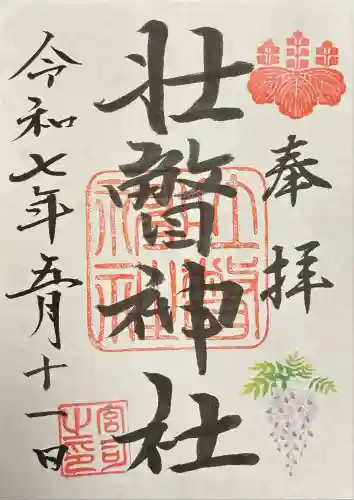 奉拝
壮警神社
令和七年五月十一日
壮瞥神社
宮司之印